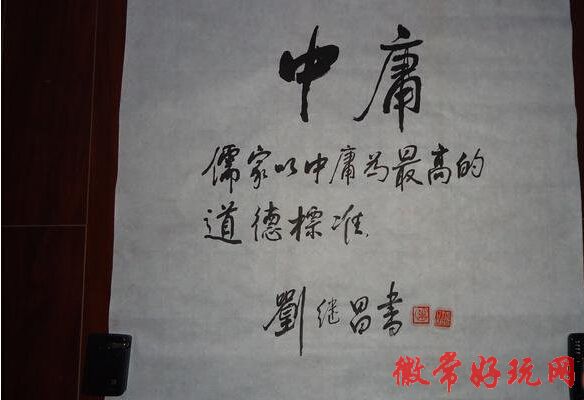 中庸
儒家以中庸为最高的
道德标准
劉继昌书
微常好玩网